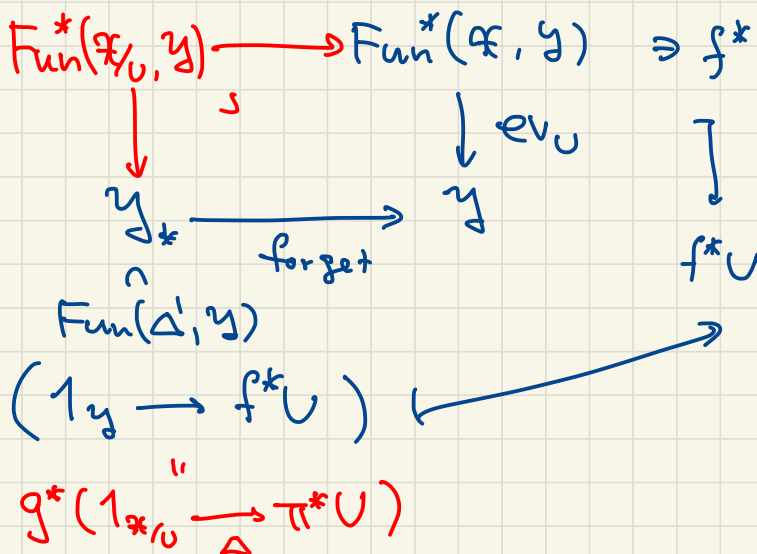 Fun*(𝒳/U, 𝒴) → Fun*(𝒳, 𝒴) ∋ f*
⌟
↓ ↓ ev_U ↧
𝒴_* → 𝒴
forget
f*U
∩
Fun(Δ¹, 𝒴)
(1_𝒴 → f*U) ↦
"
g*(1_𝒳/U → π*U)
Δ